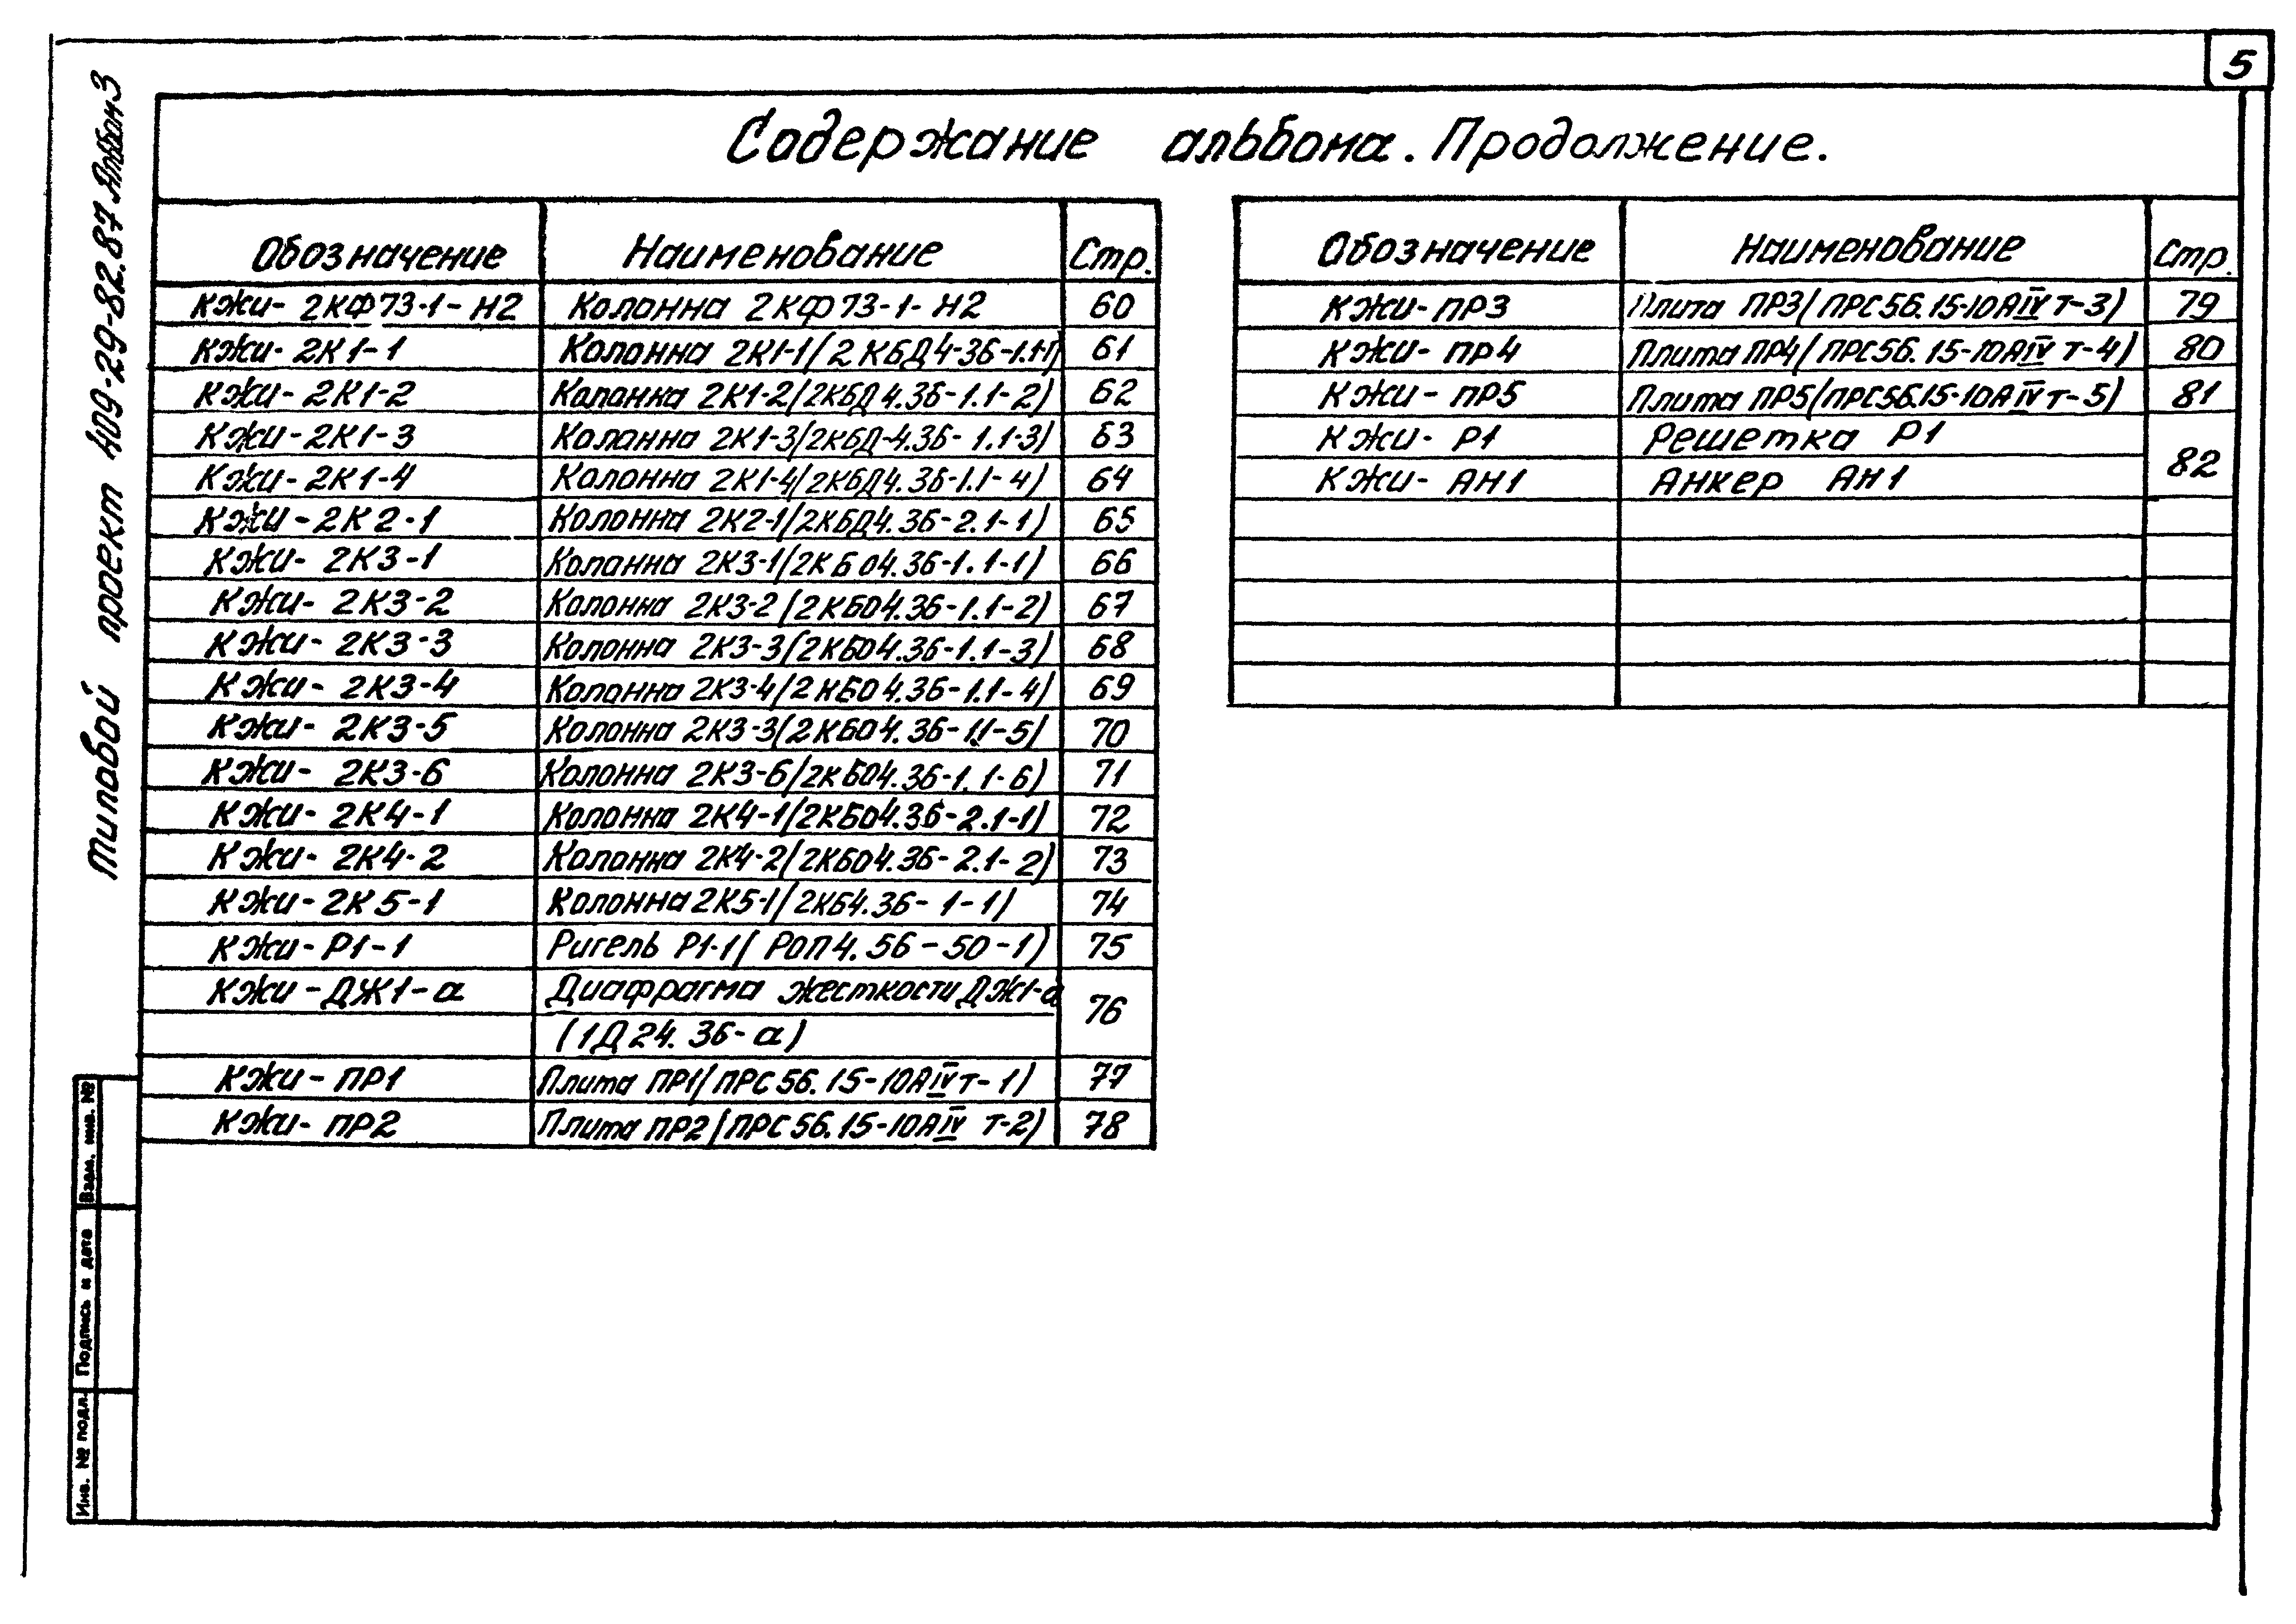 5
Типовой проект 409-29-82.87 Альбом 3
Содержание альбома. Продолжение.
Обозначение Наименование Стр.
КЖИ- 2КФ73-1-Н2 Колонна 2КФ73-1-Н2 60
КЖИ- 2К1-1 Колонна 2К1-1(2КБД4-36-1.1-1) 61
КЖИ- 2К1-2 Колонна 2К1-2(2КБД4.36-1.1-2) 62
КЖИ-2К1-3 Колонна 2К1-3(2КБД-4.36-1.1-3) 63
КЖИ-2К1-4 Колонна 2К1-4(2КБД4.36-1.1-4) 64
КЖИ-2К2-1 Колонна 2К2-1(2КБД4.36-2.1-1) 65
КЖИ- 2К3-1 Колонна 2К3-1(2КБО4.36-1.1-1) 66
КЖИ- 2К3-2 Колонна 2К3-2(2КБО4.36-1.1-2) 67
КЖИ- 2К3-3 Колонна 2К3-3(2КБО4.36-1.1-3) 68
КЖИ- 2К3-4 Колонна 2К3-4(2КБО4.36-1.1-4) 69
КЖИ- 2К3-5 Колонна 2К3-3(2КБО4.36-1.1-5) 70
КЖИ- 2К3-6 Колонна 2К3-6(2КБО4.36-1.1-6) 71
КЖИ- 2К4-1 Колонна 2К4-1(2КБО4.36-2.1-1) 72
КЖИ- 2К4-2 Колонна 2К4-2(2КБО4.36-2.1-2) 73
КЖИ-2К5-1 Колонна 2К5-1(2КБ4.36-1-1) 74
КЖИ-Р1-1 Ригель Р1-1(РОП4.56-50-1) 75
КЖИ-ДЖ1-а Диафрагма жесткости ДЖ1-а 76
(1Д24.36-а)
КЖИ-ПР1 Плита ПР1(ПРС56.15-10АIVТ-1) 77
КЖИ-ПР2 Плита ПР2(ПРС56.15-10АIV Т-2) 78
Обозначение Наименование Стр.
КЖИ-ПР3 Плита ПР3(ПРС56.15-10АIVТ-3) 79
КЖИ-ПР4 Плита ПР4(ПРС56.15-10АIV Т-4) 80
КЖИ-ПР5 Плита ПР5(ПРС56.15-10АIVТ-5) 81
КЖИ- Р1 Решетка Р1 82
КЖИ- АН1 Анкер АН1
Взам. инв. №
Подпись и дата
Инв. № подл.